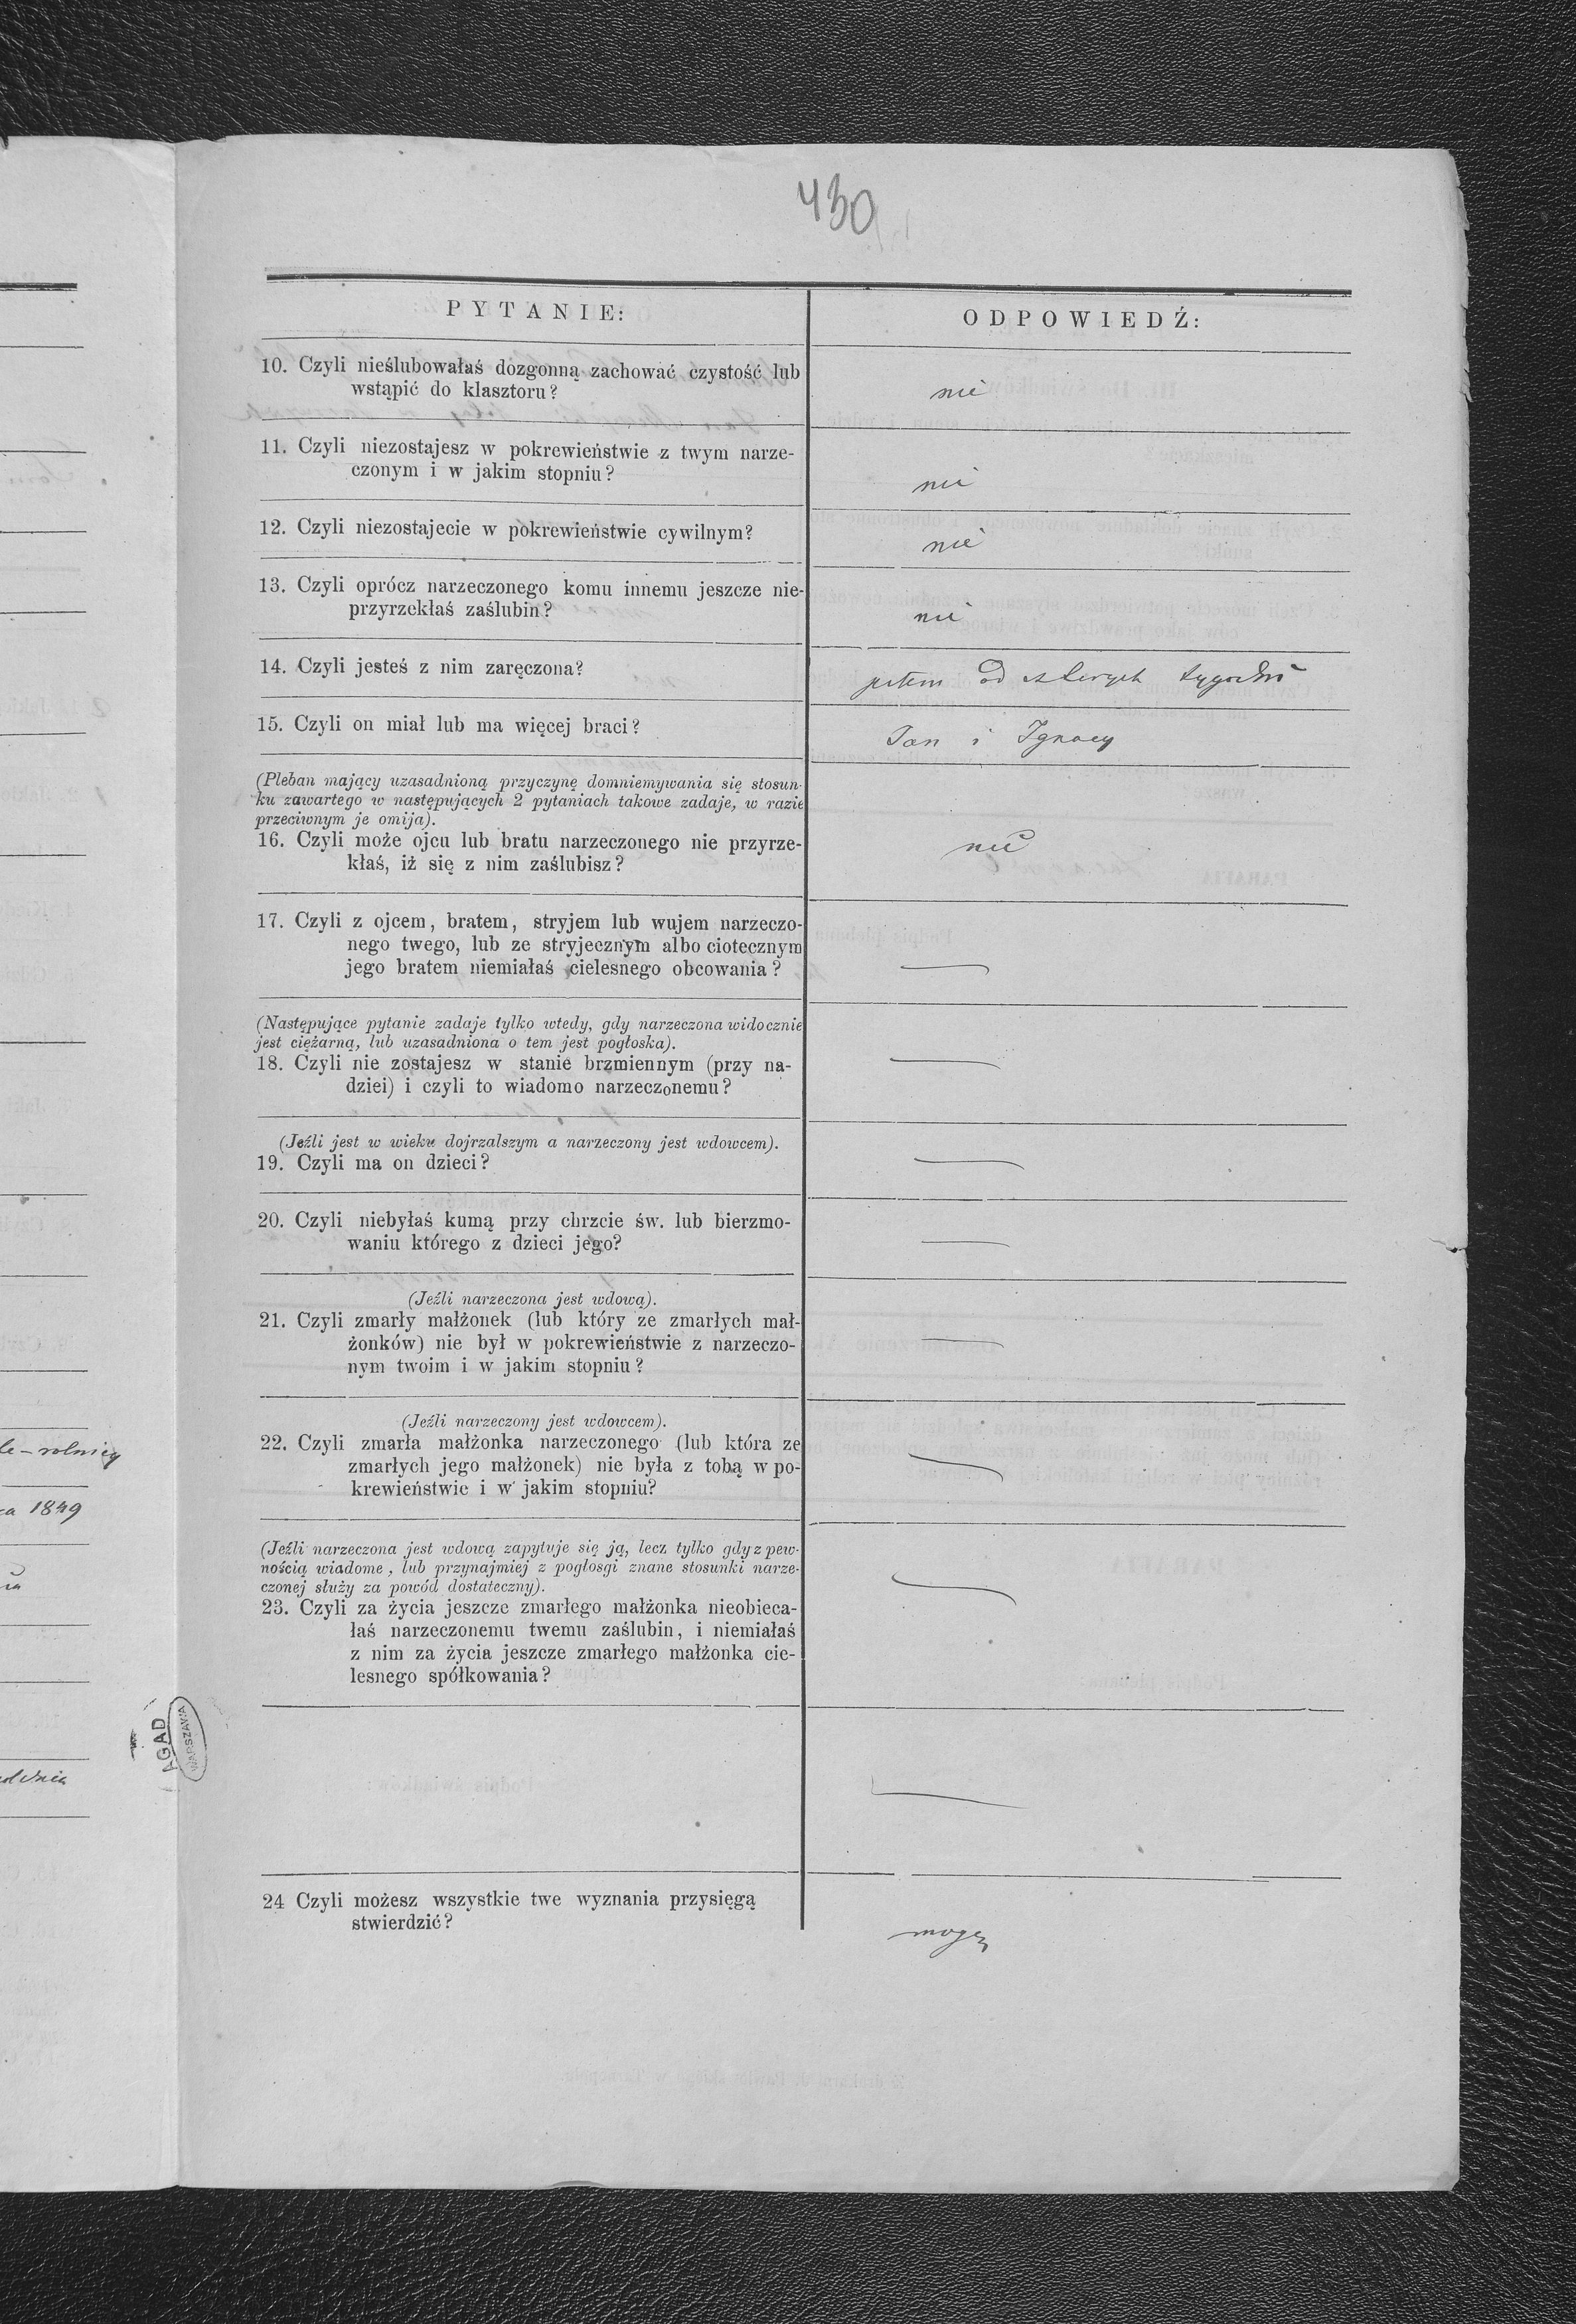 430
PYTANIE:
ODPOWIEDŹ:
10. Czyli nieślubowałaś dozgonną zachować czystość lub
wstąpić do klasztoru?
nie
11. Czyli niezostajesz w pokrewieństwie z twym narze-
czonym i w jakim stopniu?
nie
12. Czyli niezostajecie w pokrewieństwie cywilnym?
nie
13. Czyli oprócz narzeczonego komu innemu jeszcze nie-
przyrzekłaś zaślubin?
nie
14. Czyli jesteś z nim zaręczona?
jestem od czterych tygodni
15. Czyli on miał lub ma więcej braci?
Jan i Ignacy
(Pleban mający uzasadnioną przyczynę domniemywania się stosun-
ku zawartego w następujących 2 pytaniach takowe zadaje, w razie
przeciwnym je omija).
16. Czyli może ojcu lub bratu narzeczonego nie przyrze-
kłaś, iż się z nim zaślubisz?
nie
17. Czyli z ojcem, bratem, stryjem lub wujem narzeczo-
nego twego, lub ze stryjecznym albo ciotecznym
jego bratem niemiałaś cielesnego obcowania?
(Następujące pytanie zadaje tylko wtedy, gdy narzeczona widocznie
jest ciężarną, lub uzasadniona o tem jest pogłoska).
18. Czyli nie zostajesz w stanie brzmiennym (przy na-
dziei) i czyli to wiadomo narzeczonemu?
(Jeźli jest w wieku dojrzalszym a narzeczony jest wdowcem).
19. Czyli ma on dzieci?
20. Czyli niebyłaś kumą przy chrzcie św. lub bierzmo-
waniu którego z dzieci jego?
(Jeźli narzeczona jest wdową).
21. Czyli zmarły małżonek (lub który ze zmarłych mał-
żonków) nie był w pokrewieństwie z narzeczo-
nym twoim i w jakim stopniu?
(Jeźli narzeczony jest wdowcem).
22. Czyli zmarła małżonka narzeczonego (lub która ze
zmarłych jego małżonek) nie była z tobą w po-
krewieństwie i w jakim stopniu?
(Jeźli narzeczona jest wdową zapytuje się ją, lecz tylko gdy z pew-
nością wiadome, lub przynajmiej z pogłosgi znane stosunki narze-
czonej służy za powód dostateczny).
23. Czyli za życia jeszcze zmarłego małżonka nieobieca-
łaś narzeczonemu twemu zaślubin, i niemiałaś
z nim za życia jeszcze zmarłego małżonka cie-
lesnego spółkowania?
24 Czyli możesz wszystkie twe wyznania przysięgą
stwierdzić?
mogę
le - rolnicy
1849
AGAD
WARSZAWA